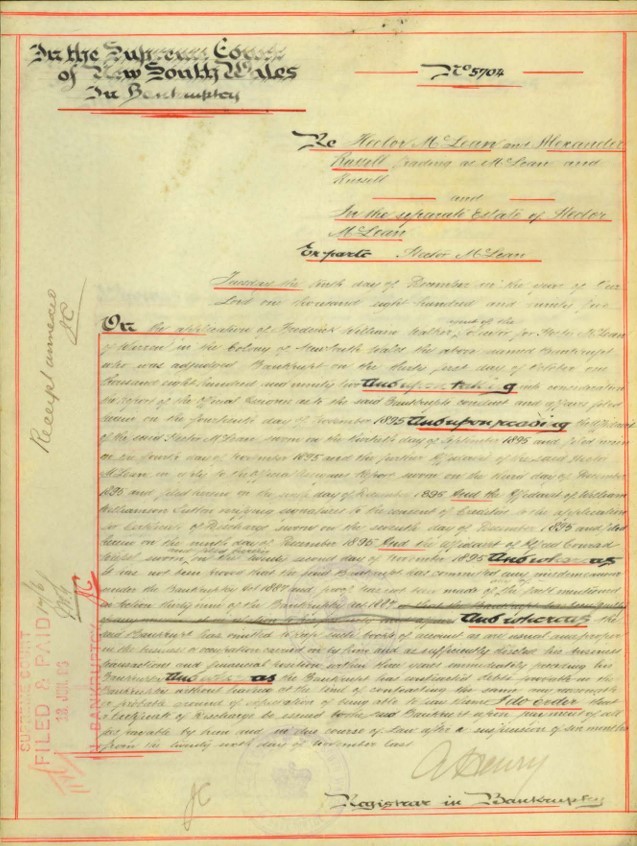 In the Supreme Court
of New South Wales
In Bankruptcy
No 5704
Re Hector McLean and Alexander
Russell trading as McLean and
Russell
and
In the separate Estate of Hector
McLean
Ex parte Hector McLean
Tuesday the tenth day of December in the year of Our
Lord one thousand eight hundred and ninety five
On the application of Frederick William Walker agent of the Solicitor for Hector McLean
of Warren in the Colony of New South Wales the above named Bankrupt
who was adjudged Bankrupt on the thirty first day of October one
thousand eight hundred and ninety two And upon taking into consideration
the report of the Official Assignee as to the said Bankrupts conduct and affairs filed
herein on the fourteenth day of November 1895 And upon reading the Affidavit
of the said Hector McLean sworn on the day of September 1895 and filed herein
on the fourth day of November 1895 and the further Affidavit of the said Hector
McLean in reply to the Official Assignees Report sworn on the third day of December
1895 and filed herein on the day of December 1895 And the Affidavit of William
Williamson Sutton verifying signatures to the consent of Creditors to the application
for Certificate of Discharge sworn on the seventh day of December 1895 and filed
herein on the ninth day of December 1895 And the affidavit of Alfred Conrad
sworn and filed herein on the twenty second day of November 1895 And whereas
it has not been proved that the said Bankrupt has committed any misdemeanour
under the Bankruptcy Act 1887 and proof has not been made of the facts mentioned
in Section thirty nine of the Bankruptcy Act 1887 And whereas the
said Bankrupt has omitted to keep such books of account as are usual and proper
in the business or occupation carried on by him and as sufficiently disclose his business
transactions and financial position within three years immediately preceding his
Bankruptcy And whereas the Bankrupt has contracted debts provable in the
Bankruptcy without having at the time of contracting the same any reasonable
or probable ground of expectation of being able to pay them I do order that
a Certificate of Discharge be issued to the said Bankrupt upon payment of all
fees payable by him and in due course of Law after a suspension of six months
from the twenty sixth day of November last
A Henry
Registrar in Bankruptcy
JC
Receipt annexed
JC
SUPREME COURT
FILED & PAID
JUN. 96
IN BANKRUPTCY
JC